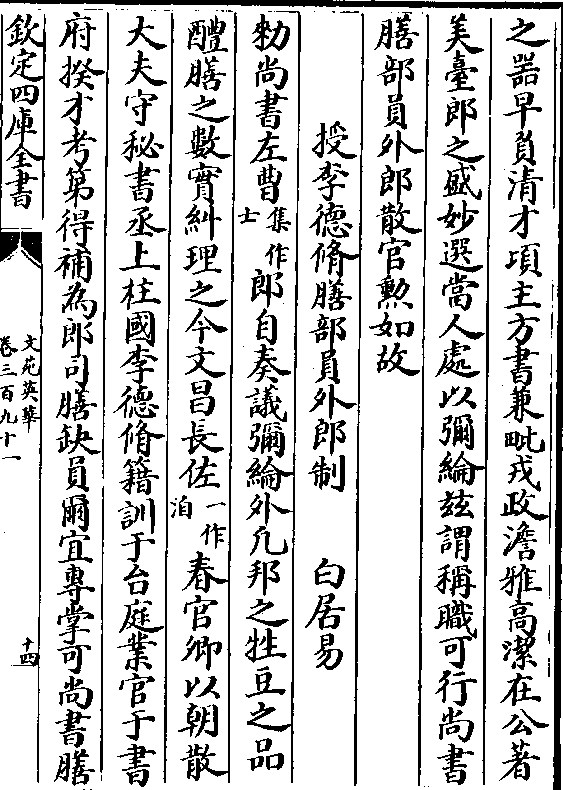 之器早負清才頃主方書兼毗戎政澹雅高潔在公著
美臺郎之盛妙選當人處以彌綸兹謂稱職可行尚書
膳部員外郎散官勲如故
授李德脩膳部員外郎制 白居易
勑尚書左曹集作士郎自奏議彌綸外凡邦之牲豆之品
醴膳之數實糾理之今文昌長佐一作洎春官卿以朝散
大夫守秘書丞上柱國李德脩籍訓于台庭業官于書
府揆才考第得補為郎司膳缺員爾宜專掌可尚書膳
欽定四庫全書
文苑英華
卷三百九十一
十四